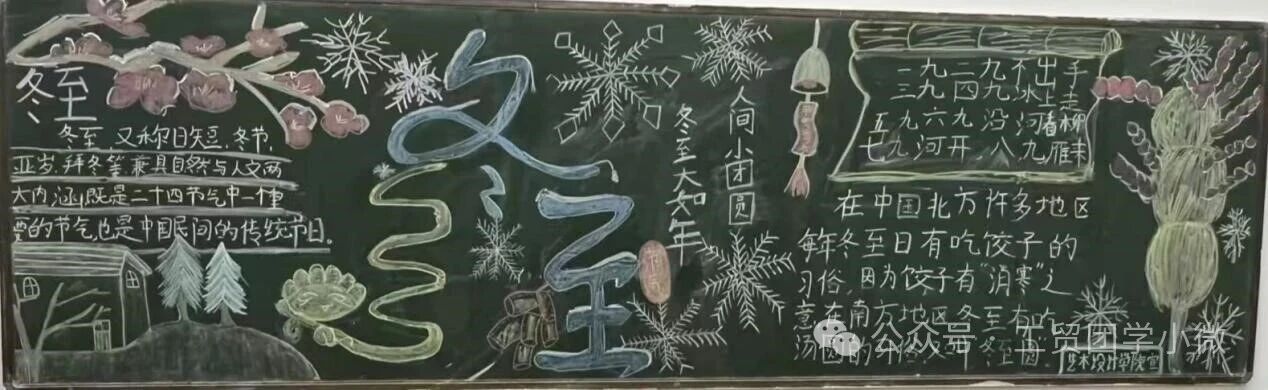 冬至
冬至,又称日短、冬节,
亚岁、拜冬等兼具自然与人文两
大内涵,既是二十四节气中一个重
要的节气,也是中国民间的传统节日。
冬至
人间小团圆
冬至大如年
一九二九不出手
三九四九冰上走
五九六九沿河春柳
七九河开八九雁来
在中国北方许多地区
每年冬至日有吃饺子的
习俗,因为饺子有“消寒”之
意在南方地区冬至有吃
汤圆的习俗又叫“冬至圆”
艺术设计学院宣
公众号 工贸团学小微